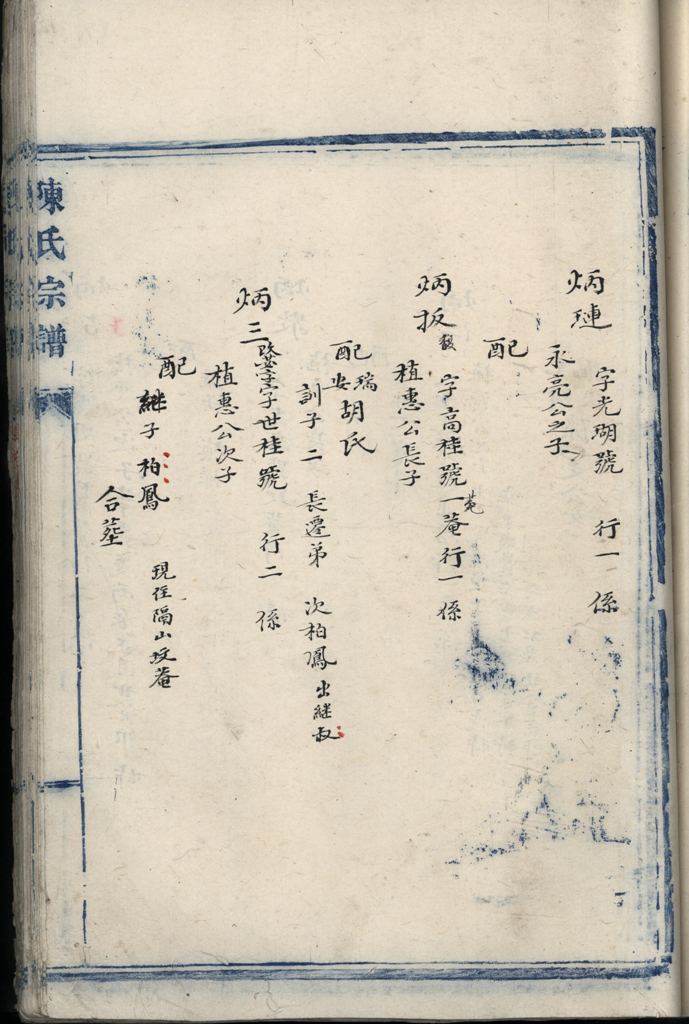 炳璉
字光瑚號 行一 係
永亮公之子
配
炳扳
字高桂號一菴 行一 係
植惠公長子
配瑞安胡氏
訓子二 長遷弟 次柏鳳出継叔
炳三
字世桂號 行二 係
植惠公次子
配
継子柏鳳 現住隔山坟菴
合塟
陳氏宗譜